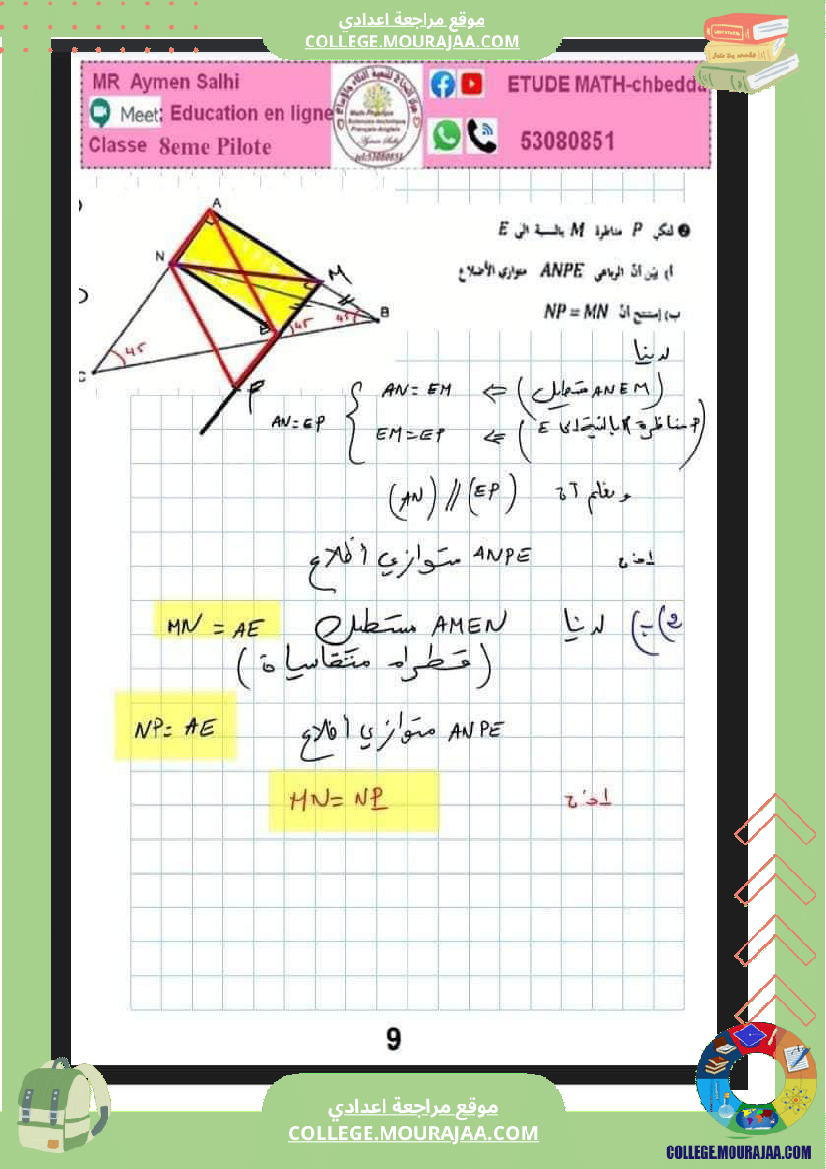 موقع مراجعة اعدادي
COLLEGE.MOURAJAA.COM
MR Aymen Salhi
Meet: Education en ligne
Classe 8eme Pilote
ETUDE MATH-chbedda
53080851
❷ لتكن P مناظرة M بالنسبة الى E
أ) بيّن أنّ الرباعي ANPE متوازي الأضلاع
ب) إستنتج أنّ NP = MN
A
N
M
B
E
C
P
45
45
45
لدينا
AN = EM ⇐ (ANEM مستطيل)
AN = EP
EM = EP ⇐ (P مناظرة M بالنسبة الى E)
و نعلم أن (AN) // (EP)
إذن ANPE متوازي أضلاع
2) ب) لدينا AMEN مستطيل MN = AE
(قطراه متقايسان)
ANPE متوازي أضلاع NP = AE
إذن MN = NP
9
موقع مراجعة اعدادي
COLLEGE.MOURAJAA.COM
COLLEGE.MOURAJAA.COM